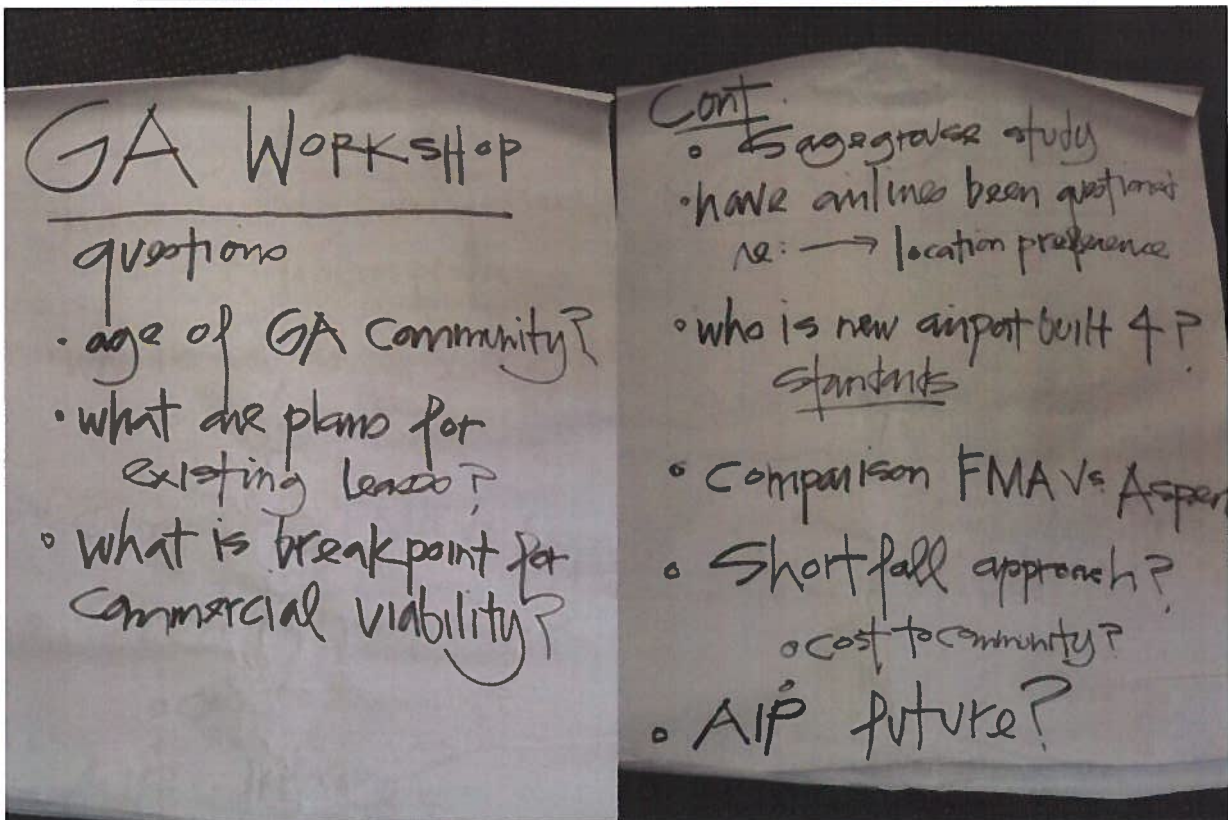 GA WORKSHOP
questions
• age of GA Community?
• what are plans for
existing leases?
• what is breakpoint for
Commercial viability?
Cont.
• Sagegrouse study
• have airlines been questioned
re: → location preference
• who is new airport built 4?
standards
• Comparison FMA Vs Aspen
• Shortfall approach?
• cost to community?
• AIP future?